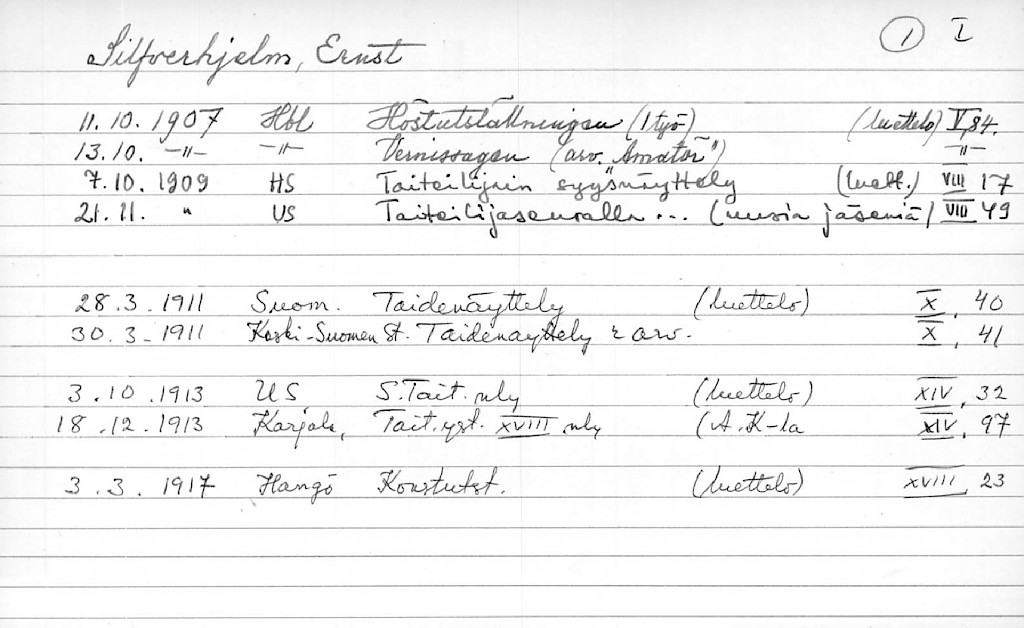 Silfverhjelm, Ernst ① I
11.10.1907 Hbl Höstutställningen (1 työ) (luettelo) V,84.
13.10. -"- -"- Vernissagen (arv. "Amatör") -"-
7.10.1909 HS Taiteilijain syysnäyttely (luett.) VIII 17
21.11. " US Taiteilijaseuralle ... (uusia jäseniä) VIII 49
28.3.1911 Suom. Taidenäyttely (luettelo) X, 40
30.3-1911 Keski-Suomen St. Taidenäyttely arv. X, 41
3.10.1913 US S.Tait. nly (luettelo) XIV, 32
18.12.1913 Karjala, Tait.yst. XVIII nly (A.K-la XIV, 97
3.3.1917 Hangö Konstutst. (luettelo) XVIII, 23